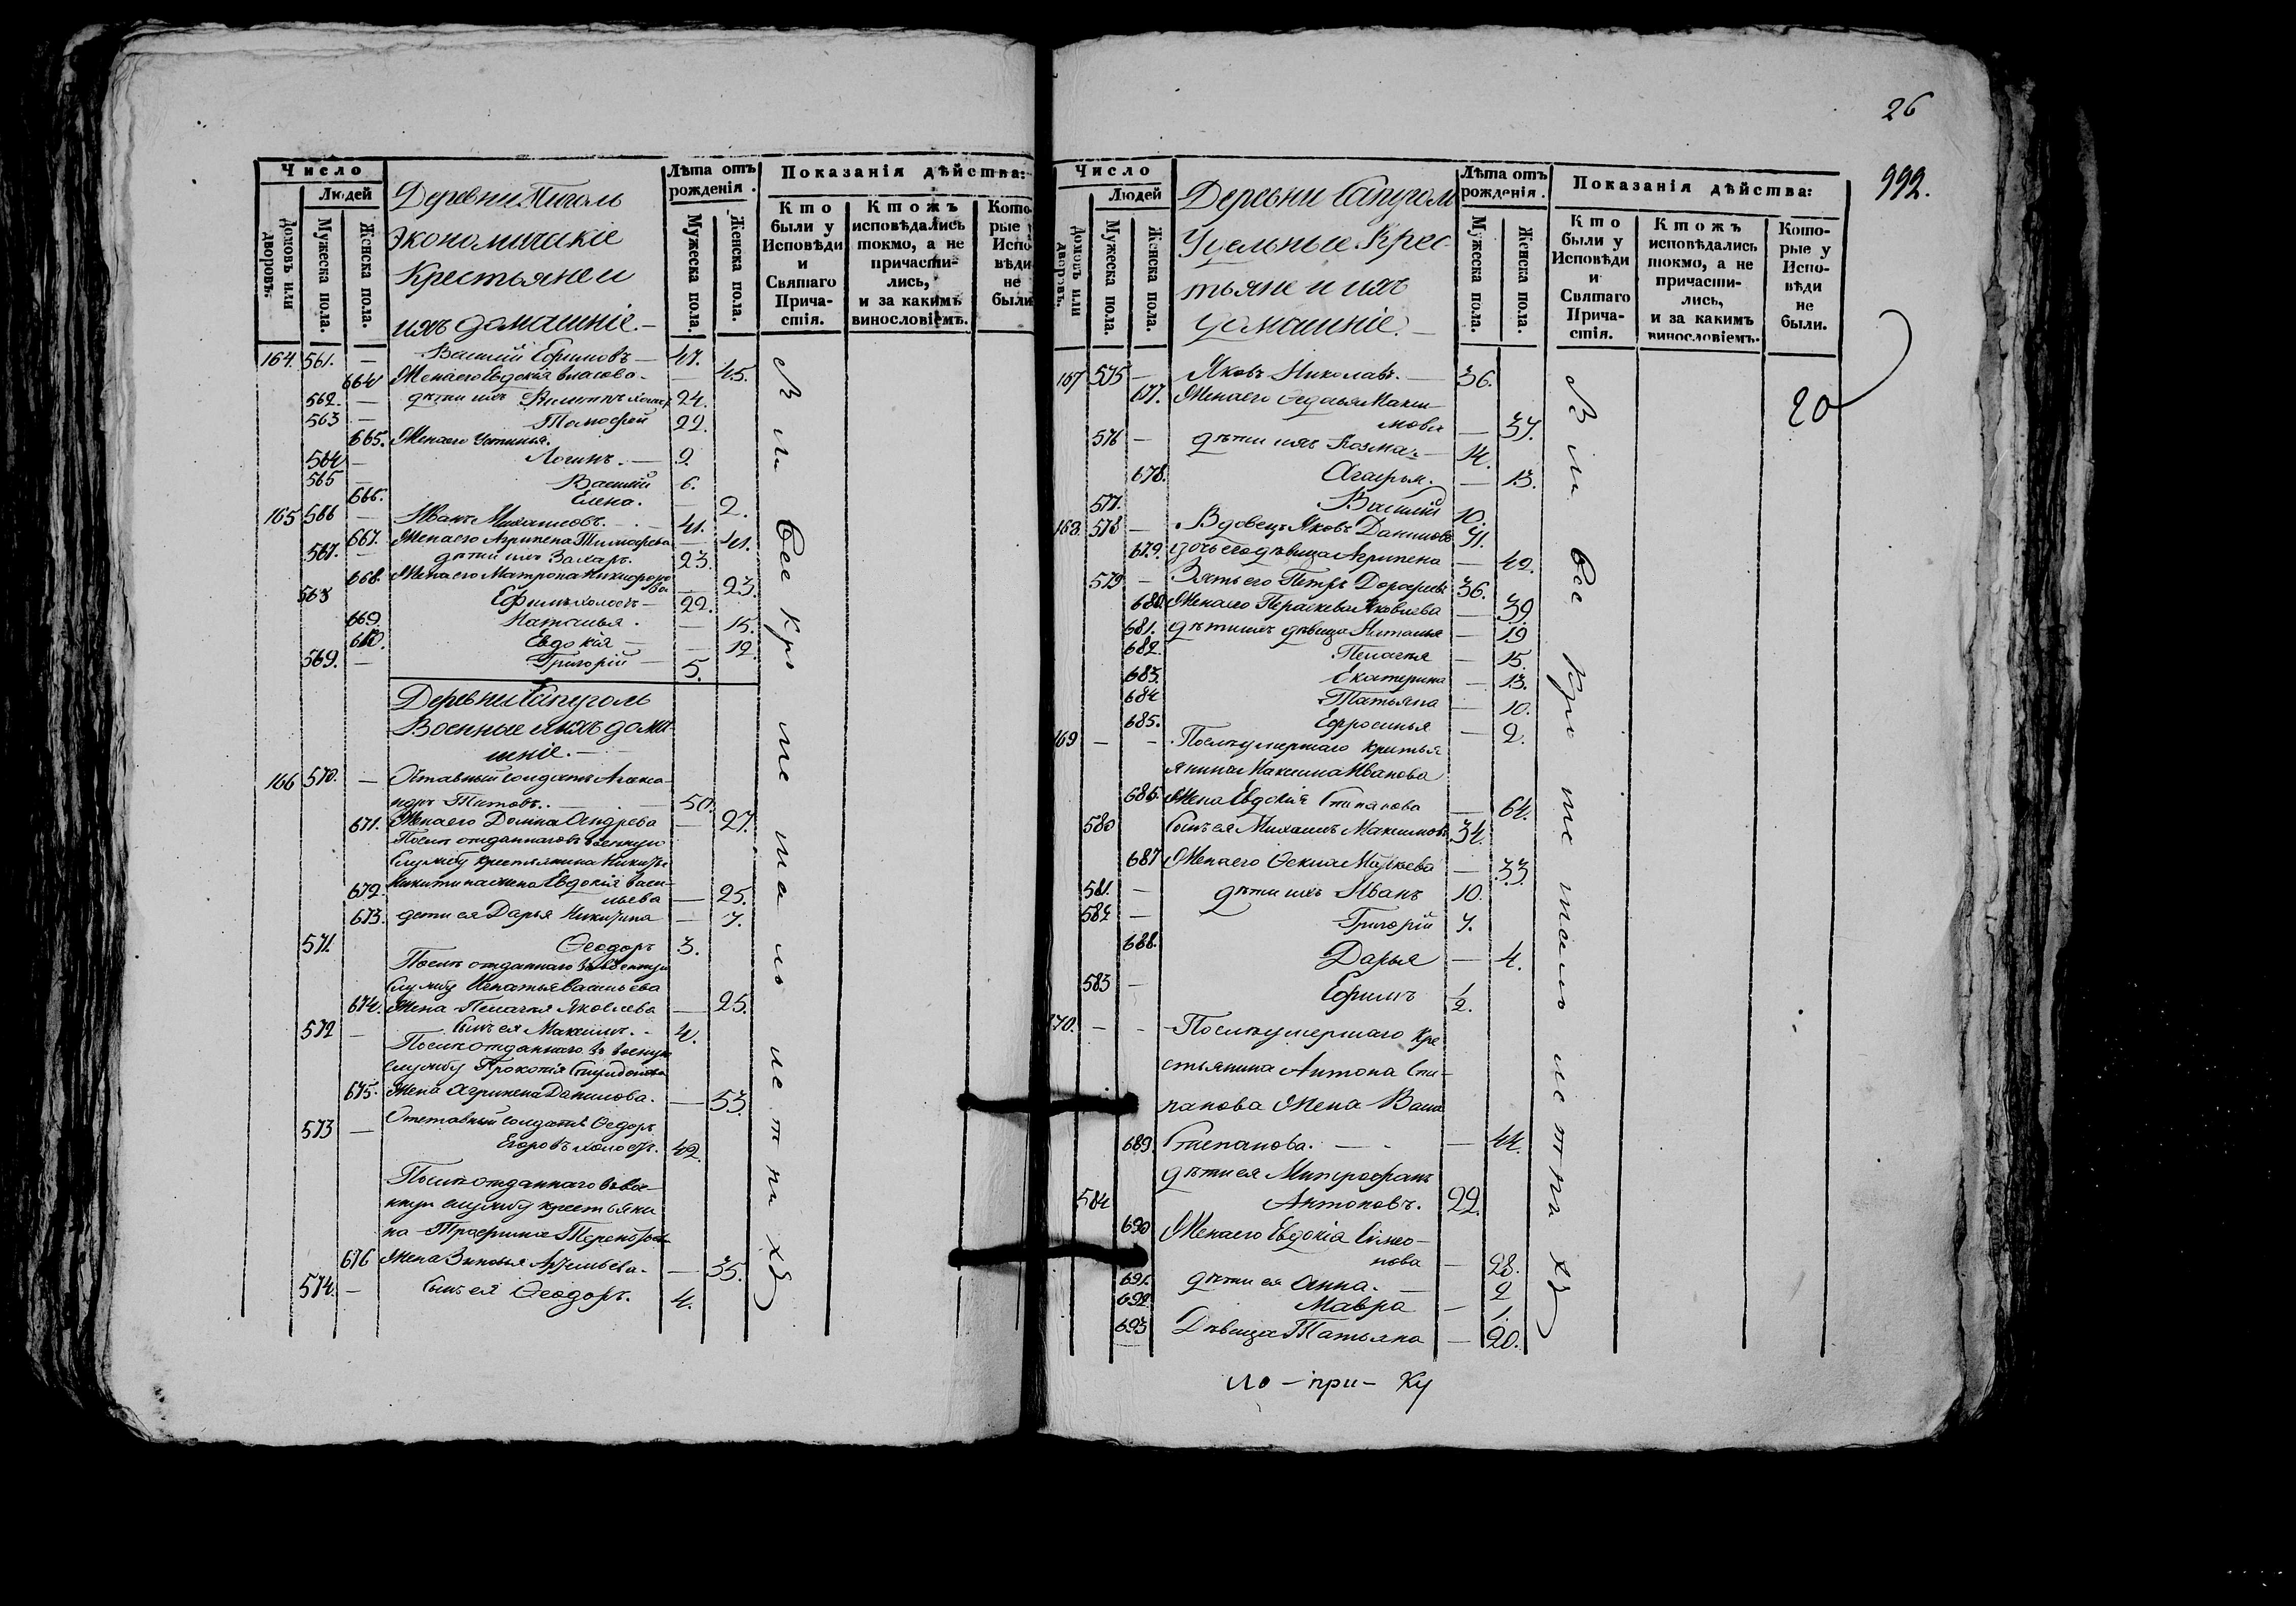 26
992.
20
Число
Людей
Домовъ или дворовъ.
Мужеска пола.
Женска пола.
Деревни
Экономическіе
Крестьяне и
ихъ домашніе. —
Лѣта отъ рожденія.
Мужеска пола.
Женска пола.
Показанія дѣйства:
Кто были у Исповѣди и Святаго Прича-стія.
Ктожъ исповѣдались токмо, а не причасти-лись, и за какимъ винословіемъ.
Кото-рые у Испо-вѣди не были
164. 561. — Василій Ефимовъ — 47.
664 Жена его Евдокія Власова — 45.
562. — дѣти ихъ Филиппъ холост 24.
563 — Тимофей 22.
665. Жена его Устинья.
564 — Логинъ. — 9.
565 — Василий 6.
666. Елена. — 2.
165 566 — Иванъ Михаиловъ. — 41.
667. Жена его Агрипена Тимофеева — 41.
567. — дѣти ихъ Захаръ. 23.
668. Жена его Матрона Никифорова — 23.
568 Ефимъ холостъ — 22.
669. Наталья. — 15.
670. Евдокія — 12.
569. — Григорій — 5.
Деревни Сапуголь
Военные и ихъ дома-
шніе. —
166 570. — Отставный солдатъ Алекса-
ндръ Титовъ. — 50.
671. Жена его Домна Андрева — 27.
Послѣ отданнаго въ военную
службу крестьянина Никиты
672. Никитина жена Евдокія Васи-
льева — 25.
673. дети ея Дарья Никитина — 7.
571. Ѳеодоръ 3.
Послѣ отданнаго въ военную
службу Игнатья Васильева
674. Жена Пелагея Яковлева — 25.
572 — Сынъ ея Максимъ. — 4.
Послѣ отданнаго въ военную
службу Прокопія Спиридонова
675. Жена Агрипена Данилова. — 53.
573 — Отставный солдатъ Ѳедоръ
Егоровъ холостъ. 42.
Послѣ отданнаго въ вое-
нную службу крестьяни-
на Трафима Терентьева
676 Жена Зиновья Артемьева. — 35.
574. — Сынъ ея Ѳеодоръ. 4.
Число
Людей
Домовъ или дворовъ.
Мужеска пола.
Женска пола.
Деревни Сапуголь
Удельные Крес-
тьяне и ихъ
домашніе. —
Лѣта отъ рожденія.
Мужеска пола.
Женска пола.
Показанія дѣйства:
Кто были у Исповѣди и Святаго Прича-стія.
Ктожъ исповѣдались токмо, а не причасти-лись, и за какимъ винословіемъ.
Кото-рые у Испо-вѣди не были.
167 575 — Яковъ Николавъ. — 36.
677. Жена его Ѳедосья Макси-
мова — 37.
576 — дѣти ихъ Козма — 14.
678. Агафья. — 13.
577. Василий 10.
168. 578 — Вдовецъ Яковъ Даниловъ 71.
679. дочь его дѣвица Агрипена — 42.
579 — Зять его Петръ Дорофеевъ 36.
680. Жена его Параскева Яковлева — 39.
681. дѣти ихъ дѣвица Наталья — 19
682. Пелагея — 15.
683. Екатерина — 13.
684 Татьяна — 10.
685. Ефросинья — 2.
169 — — Послѣ умершаго крестья-
янина Максима Иванова
686. Жена Евдокія Степанова — 64.
580 Сынъ ея Михаилъ Максимовъ 34.
687 Жена его Ѳекла Маркева — 33.
581. — дѣти ихъ Иванъ 10.
582 — Григорій 7.
688. Дарья — 4.
583 — Ефимъ 1/2.
170. — — Послѣ умершаго кре-
стьянина Антона Сте-
панова Жена Васса
689. Степанова. — — 44.
дѣти ея Митрофанъ
584 Антоновъ. 22.
690 Жена его Евдокія Симео-
нова — 28.
691. дѣти ея Анна. — 2
692. Мавра — 1.
693 Дѣвица Татьяна — 20.
ло — при — Ку